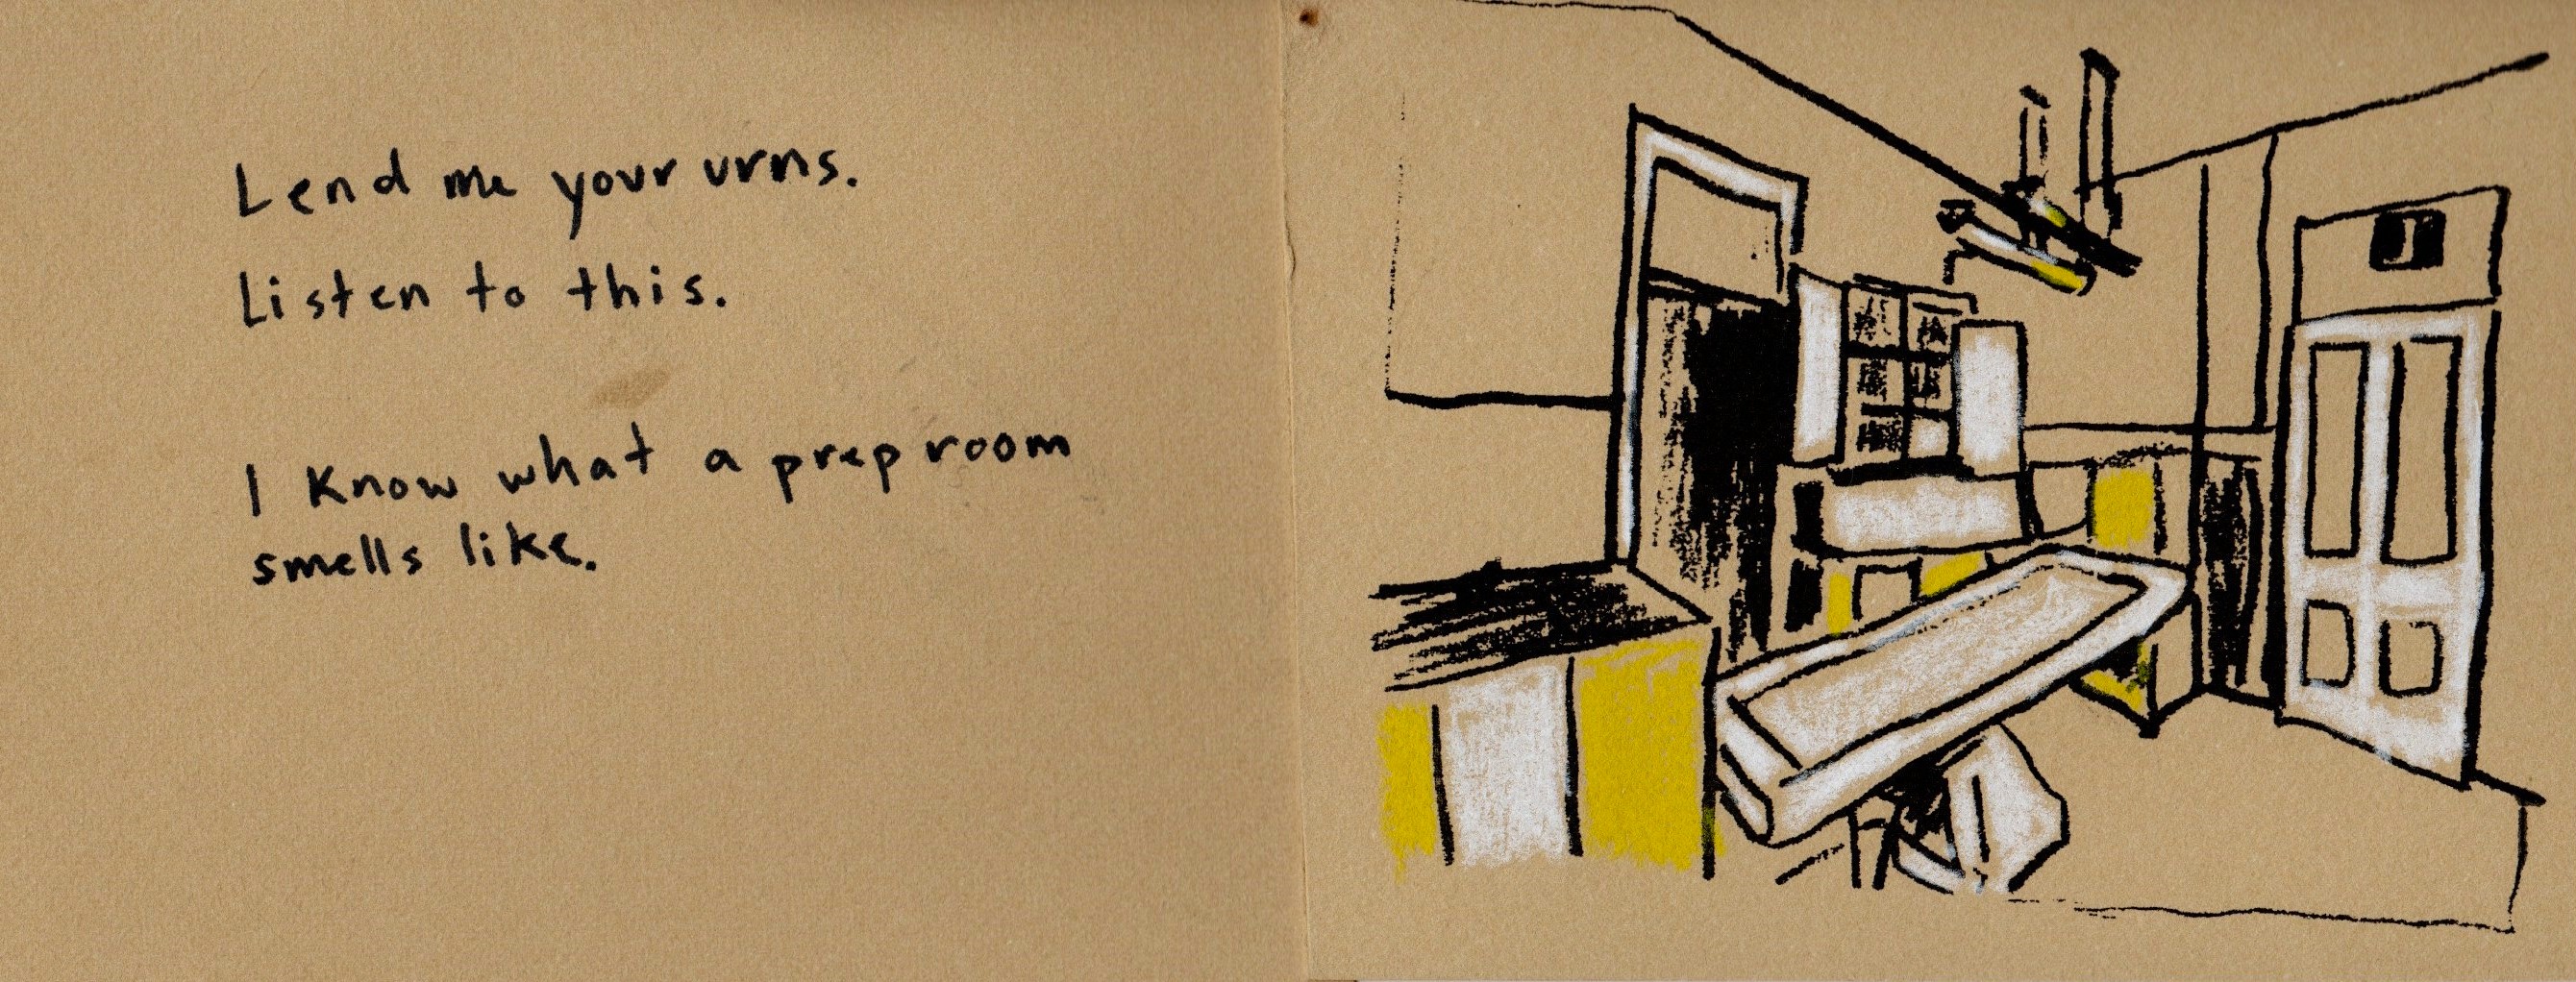 Lend me your urns.
Listen to this.
I know what a prep room
smells like.